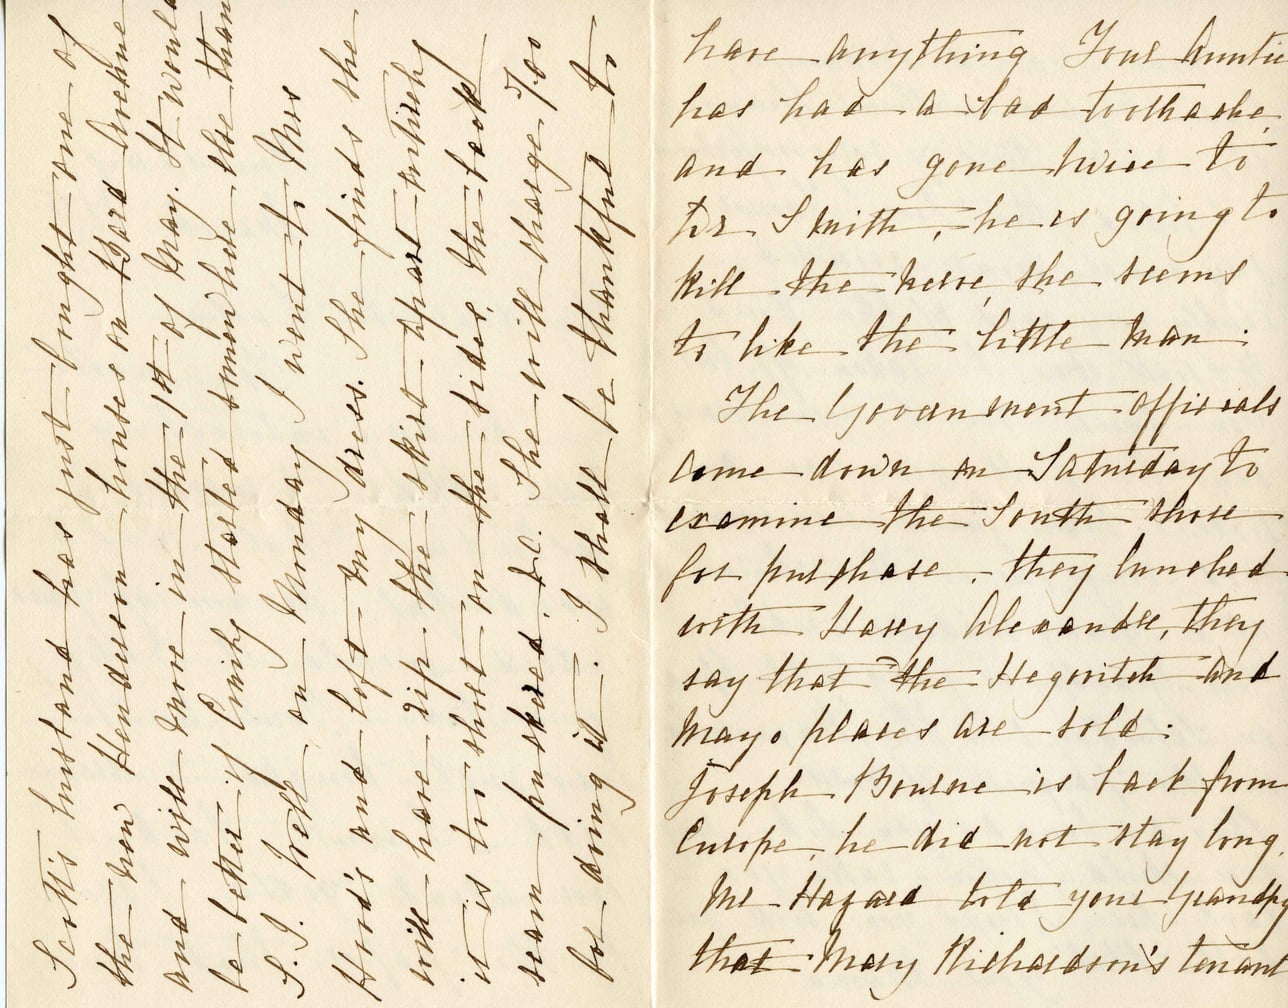 Scott's husband has just bought one of
the new Henderson houses on Bard Avenue
and will move in the 1st of May. It would
be better if Emily started somewhere else than
S. I. Well on Monday I went to Mrs
Hood's and left my dress. She finds she
will have rip the skirt apart entirely
it is too short on the sides, the back
seam puckered &c. She will charge 7.00
for doing it. I shall be thankful to
have anything Your Auntie
has had a bad toothache,
and has gone twice to
Dr Smith, he is going to
kill the nerve, she seems
to like the little man.
The Government officials
come down on Saturday to
examine the South shore
for purchase, they lunched
with Harry Alexandre, they
say that the Hegovitch and
Mayo places are sold.
Joseph Bourne is back from
Europe, he did not stay long.
Mr Hazard told your Grandpy
that Mary Richardson's tenant